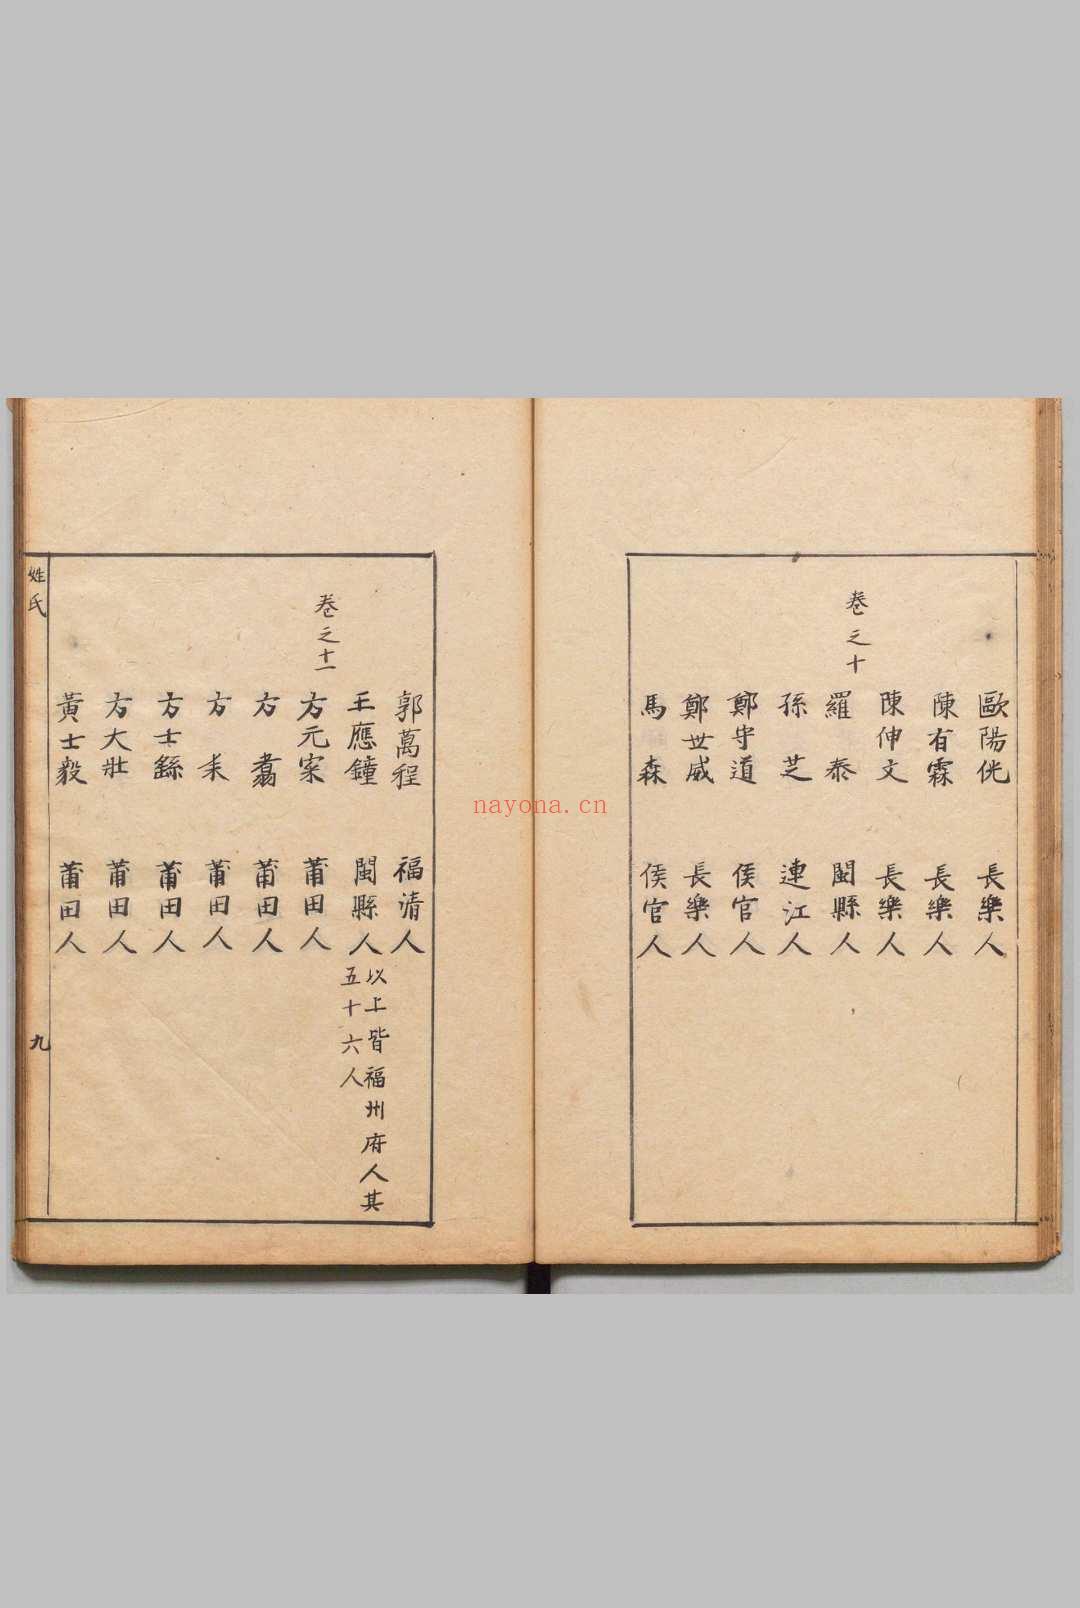 歐陽侊　長樂人
陳有霖　長樂人
陳伸文　長樂人
卷之十
羅泰　閩縣人
孫芝　連江人
鄭守道　侯官人
鄭世威　長樂人
馬森　侯官人
郭萬程　福清人
王應鐘　閩縣人　以上皆福州府人其
五十六人
卷之十一
方元寀　莆田人
方翥　莆田人
方耒　莆田人
方士繇　莆田人
方大壯　莆田人
黃士毅　莆田人
姓氏　九
nayona.cn